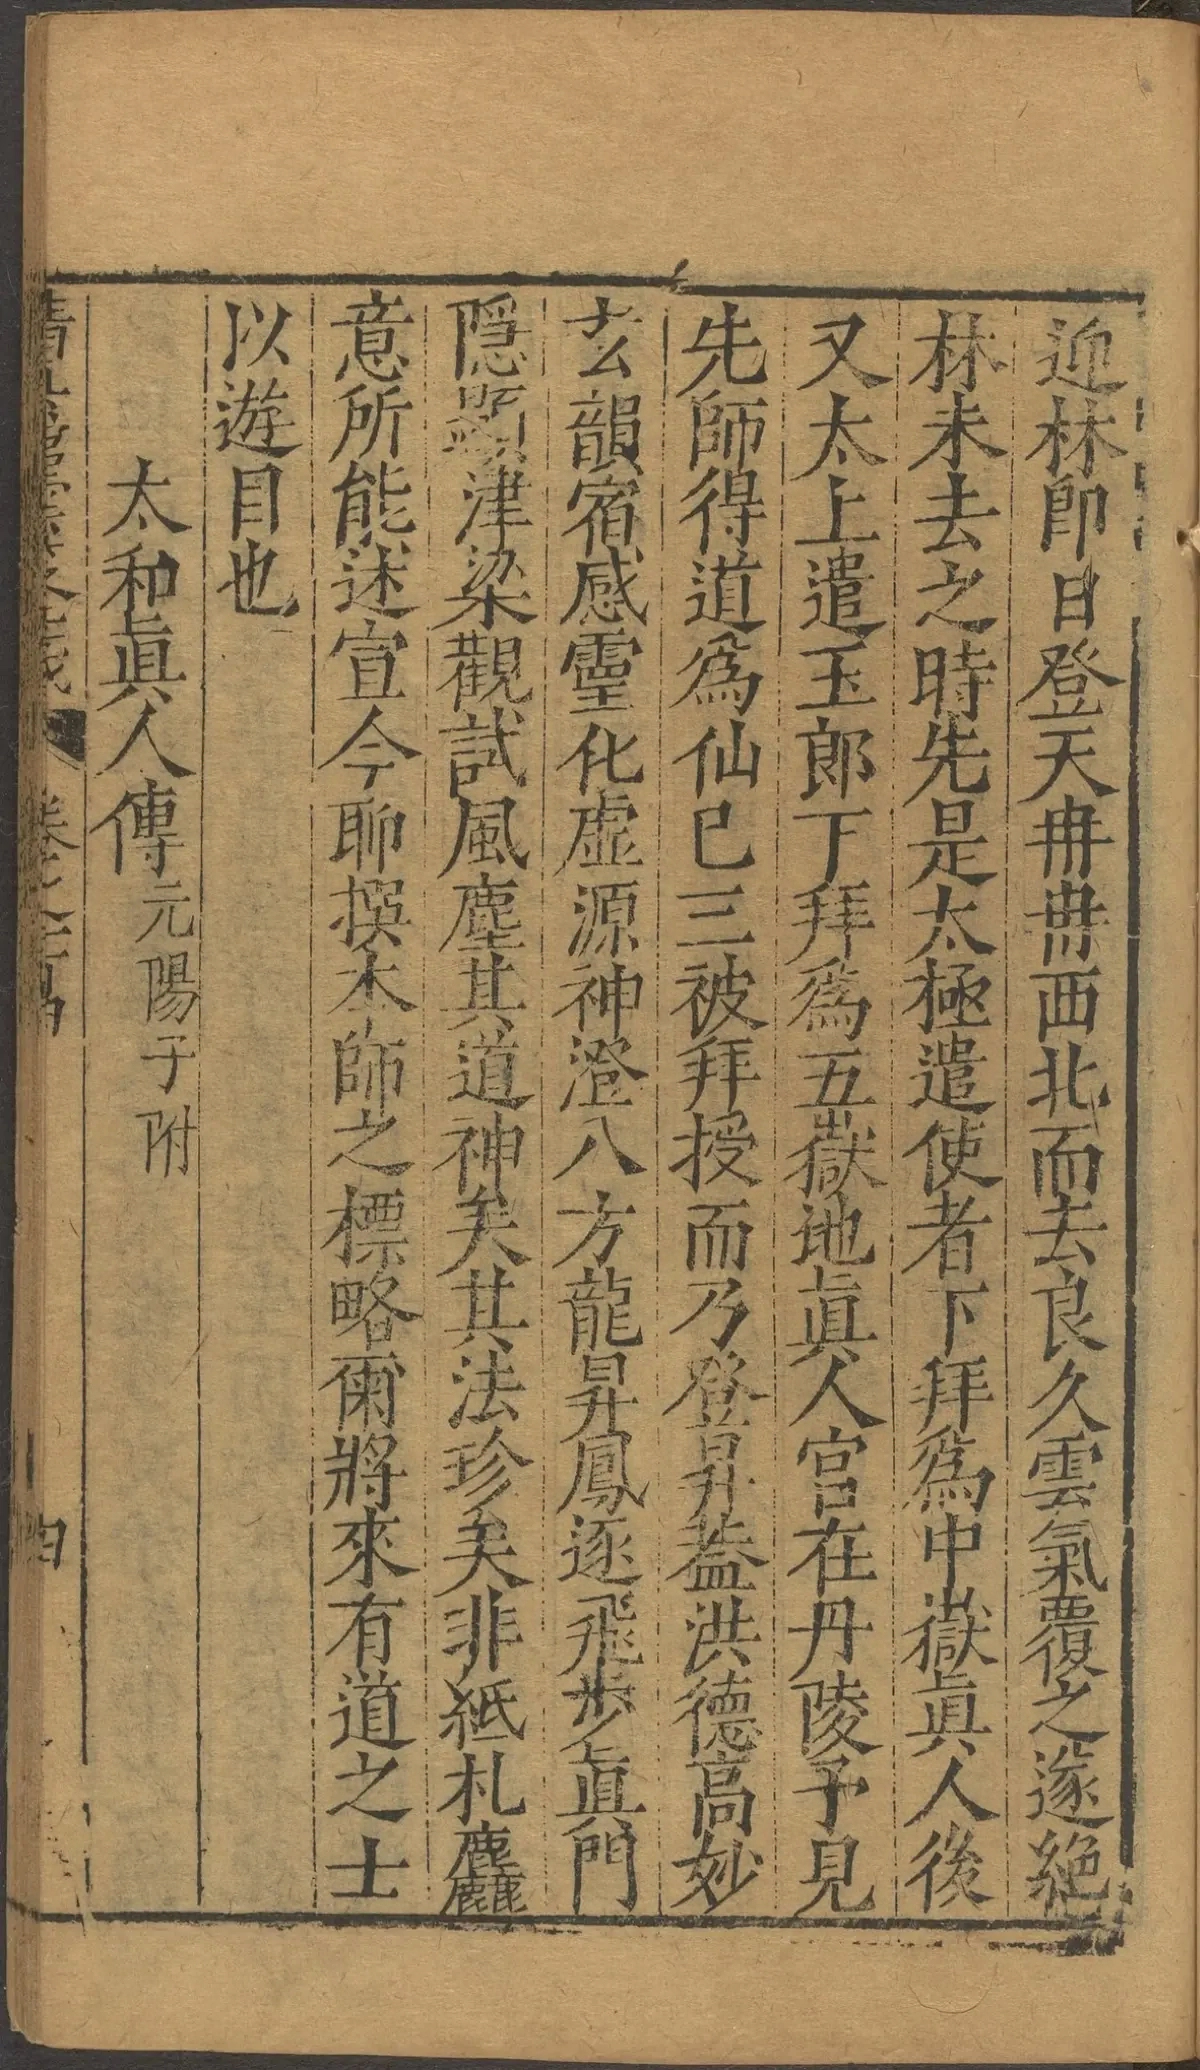 迎林即日登天冉冉西北而去良久雲氣覆之遂絕
林未去之時先是太極遣使者下拜爲中嶽眞人後
又太上遣玉郎下拜爲五嶽地眞人宮在丹陵予見
先師得道爲仙已三被拜授而乃登昇蓋洪德高妙
玄韻宿感靈化虛源神澄八方龍昇鳳逐飛步眞門
隠顯津梁觀試風塵其道神矣其法珍矣非紙札麤
意所能述宣今聊撰本師之標略爾將來有道之士
以遊目也
太和眞人傳元陽子附
四